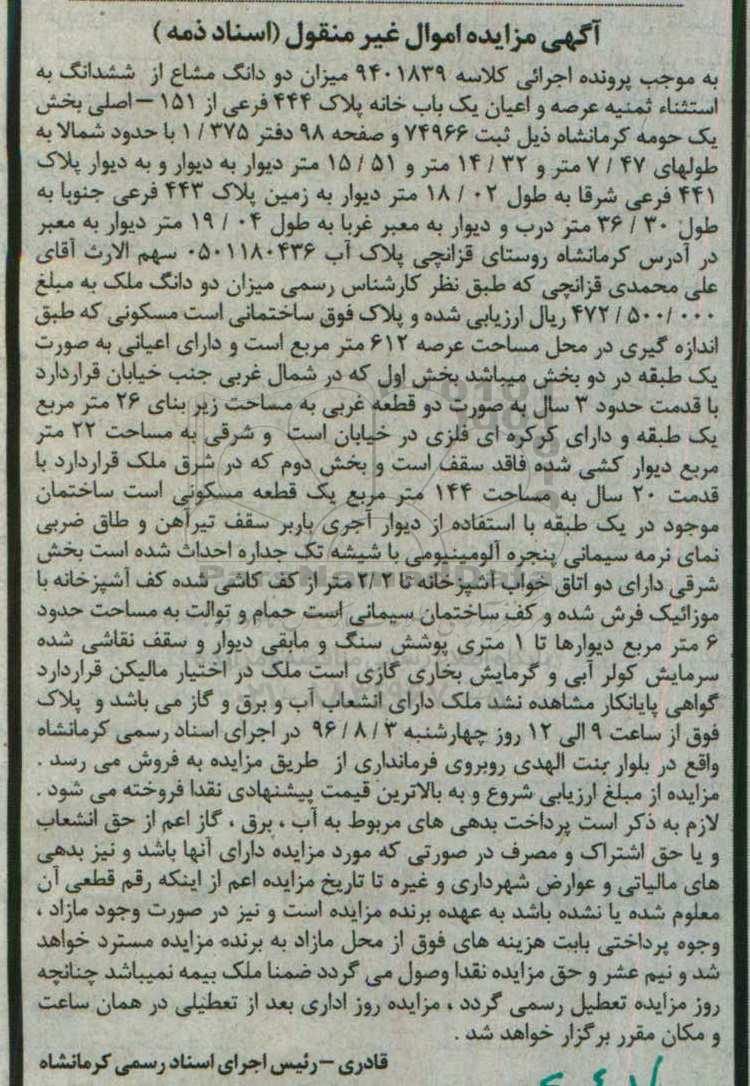 آگهی مزایده اموال غیر منقول (اسناد ذمه )
به موجب پرونده اجرائی کلاسه ۹۴۰۱۸۳۹ میزان دو دانگ مشاع از ششدانگ به
استثناء ثمنیه عرصه و اعیان یک باب خانه پلاک ۴۴۴ فرعی از ۱۵۱ –اصلی بخش
یک حومه کرمانشاه ذیل ثبت ۷۴۹۶۶ و صفحه ۹۸ دفتر ۳۷۵ / ۱ با حدود شمالا به
طولهای ۴۷ / ۷ متر و ۳۲ / ۱۴ متر و ۵۱ / ۱۵ متر دیوار به دیوار و به دیوار پلاک
۴۴۱ فرعی شرقا به طول ۰۲ / ۱۸ متر دیوار به زمین پلاک ۴۴۳ فرعی جنوبا به
طول ۳۰ / ۳۶ متر درب و دیوار به معبر غربا به طول ۰۴ / ۱۹ متر دیوار به معبر
در آدرس کرمانشاه روستای قزانچی پلاک آب ۰۵۰۱۱۸۰۴۳۶ سهم الارث آقای
علی محمدی قزانچی که طبق نظر کارشناس رسمی میزان دو دانگ ملک به مبلغ
۴۷۲/۵۰۰/۰۰۰ ریال ارزیابی شده و پلاک فوق ساختمانی است مسکونی که طبق
اندازه گیری در محل مساحت عرصه ۶۱۲ متر مربع است و دارای اعیانی به صورت
یک طبقه در دو بخش میباشد بخش اول که در شمال غربی جنب خیابان قراردارد
با قدمت حدود ۳ سال به صورت دو قطعه غربی به مساحت زیر بنای ۲۶ متر مربع
یک طبقه و دارای کرکره ای فلزی در خیابان است و شرقی به مساحت ۲۲ متر
مربع دیوار کشی شده فاقد سقف است و بخش دوم که در شرق ملک قراردارد با
قدمت ۲۰ سال به مساحت ۱۴۴ متر مربع یک قطعه مسکونی است ساختمان
موجود در یک طبقه با استفاده از دیوار آجری باربر سقف تیرآهن و طاق ضربی
نمای نرمه سیمانی پنجره آلومینیومی با شیشه تک جداره احداث شده است بخش
شرقی دارای دو اتاق خواب آشپزخانه تا ۲/۲ متر از کف کاشی شده کف آشپزخانه با
موزائیک فرش شده و کف ساختمان سیمانی است حمام و توالت به مساحت حدود
۶ متر مربع دیوارها تا ۱ متری پوشش سنگ و مابقی دیوار و سقف نقاشی شده
سرمایش کولر آبی و گرمایش بخاری گازی است ملک در اختیار مالیکن قراردارد
گواهی پایانکار مشاهده نشد ملک دارای انشعاب آب و برق و گاز می باشد و پلاک
فوق از ساعت ۹ الی ۱۲ روز چهارشنبه ۳ / ۸ / ۹۶ در اجرای اسناد رسمی کرمانشاه
واقع در بلوار بنت الهدی روبروی فرمانداری از طریق مزایده به فروش می رسد .
مزایده از مبلغ ارزیابی شروع و به بالاترین قیمت پیشنهادی نقدا فروخته می شود .
لازم به ذکر است پرداخت بدهی های مربوط به آب ، برق ، گاز اعم از حق انشعاب
و یا حق اشتراک و مصرف در صورتی که مورد مزایده دارای آنها باشد و نیز بدهی
های مالیاتی و عوارض شهرداری و غیره تا تاریخ مزایده اعم از اینکه رقم قطعی آن
معلوم شده یا نشده باشد به عهده برنده مزایده است و نیز در صورت وجود مازاد ،
وجوه پرداختی بابت هزینه های فوق از محل مازاد به برنده مزایده مسترد خواهد
شد و نیم عشر و حق مزایده نقدا وصول می گردد ضمنا ملک بیمه نمیباشد چنانچه
روز مزایده تعطیل رسمی گردد ، مزایده روز اداری بعد از تعطیلی در همان ساعت
و مکان مقرر برگزار خواهد شد .
قادری –رئیس اجرای اسناد رسمی کرمانشاه